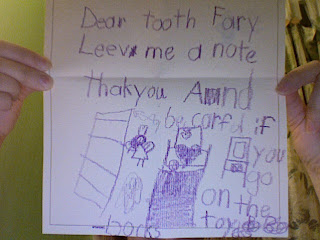 Dear tooth Fairy
Leev me a note
thakyou And
be carfd if
you
go
on the
toy
bocks